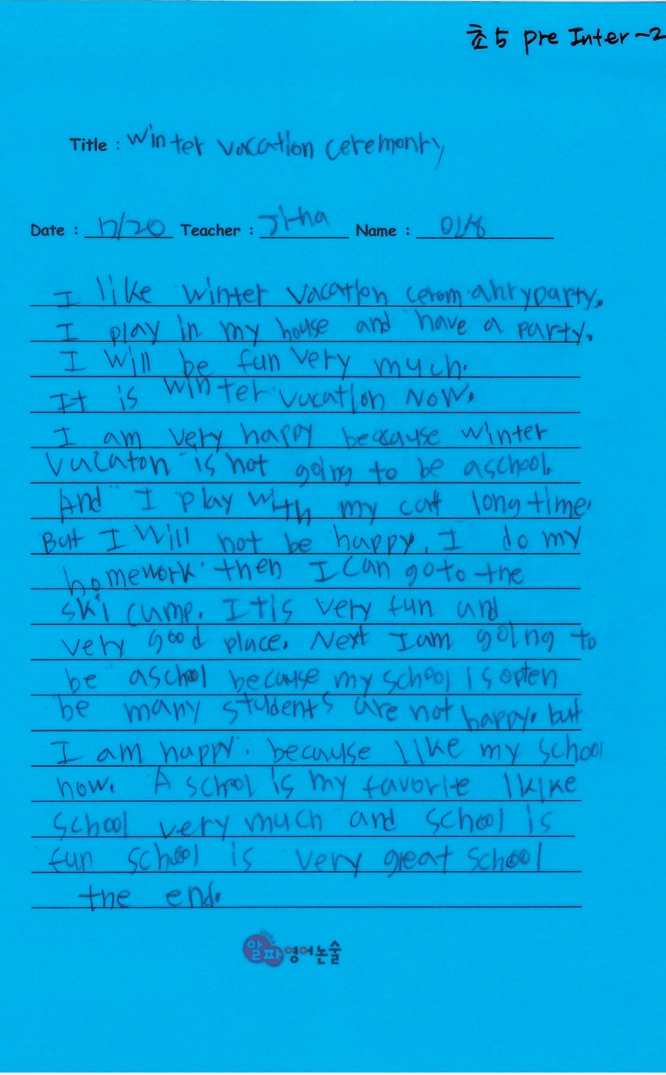 초5 pre Inter-2
Title : Winter vacation ceremonry
Date : 12/20 Teacher : Name :
I like winter vacation cerom ahryparty.
I play in my house and have a party.
I will be fun very much.
It is winter vacation now.
I am very happy because winter
vacaton is not going to be aschool.
And I play with my cat long time.
But I will not be happy. I do my
homework then I can goto the
ski camp. Itis very fun and
very good place. Next Iam going to
be aschool because my school is open
be many students are not happy. but
I am happy. because like my school
now. A school is my favorite likike
school very much and school is
fun school is very great school
the end.
알파영어논술